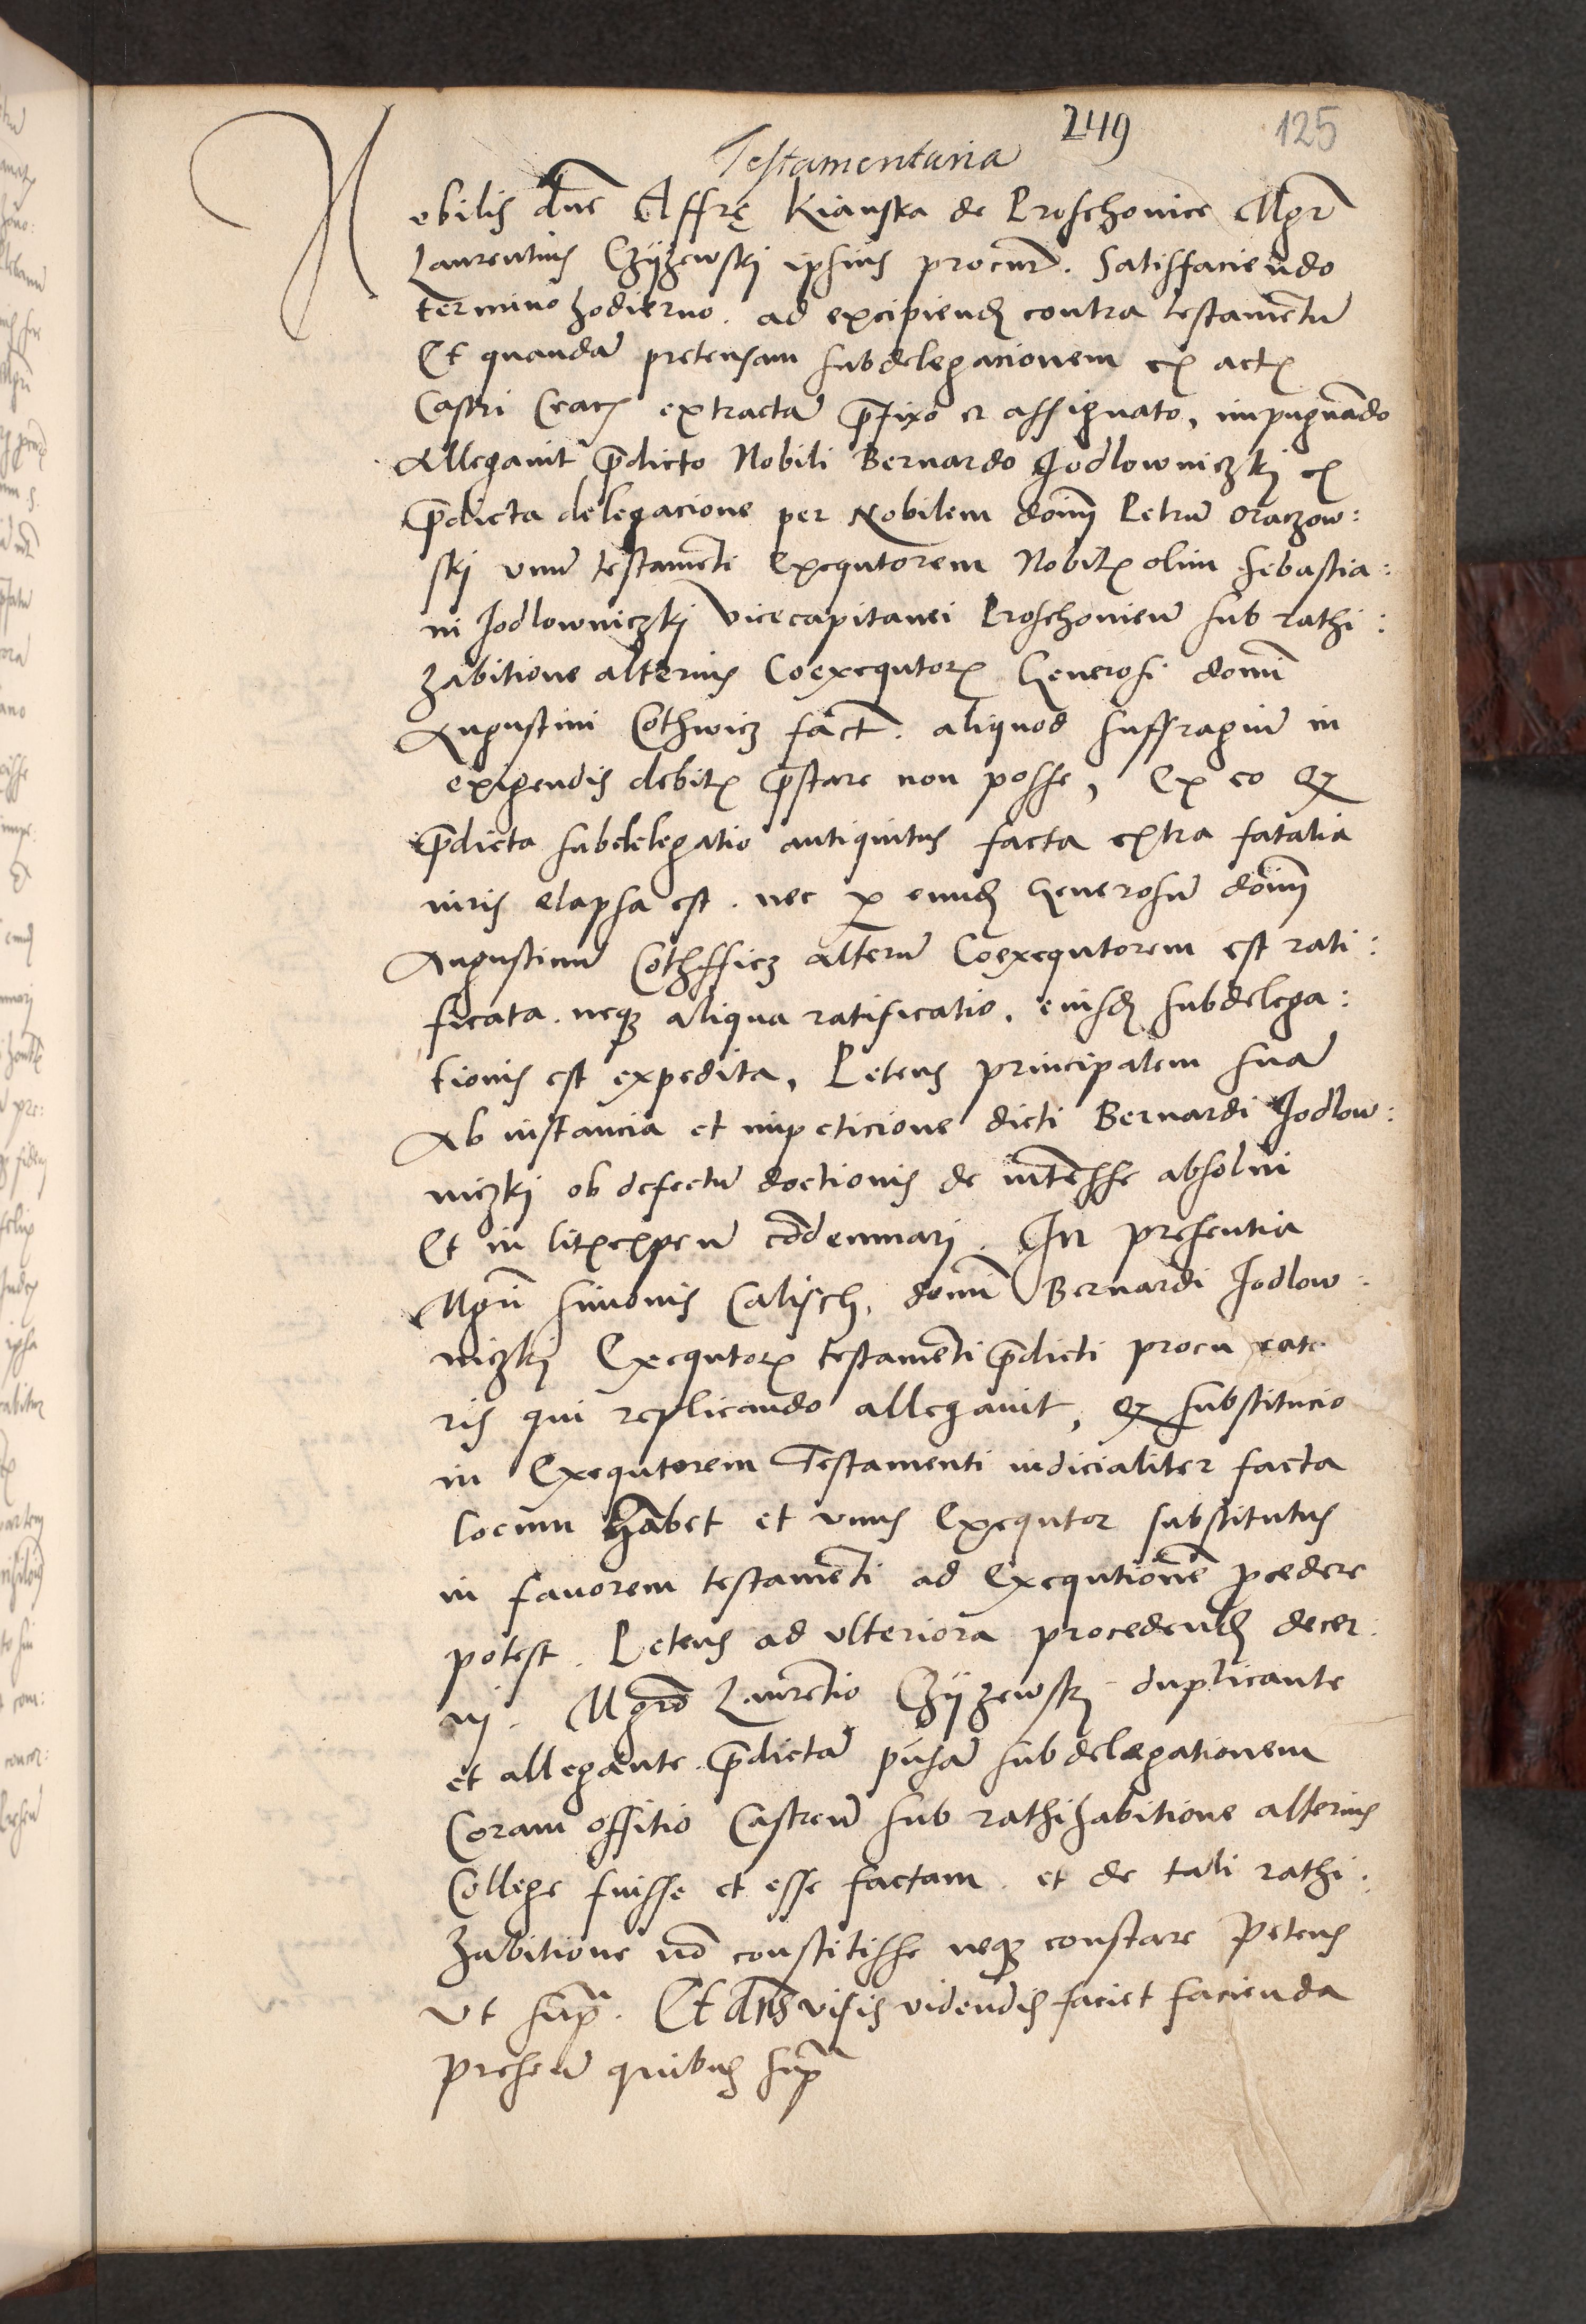 249 125
Testamentaria
Nobilis dne Affrę Kianska de Proschovice Mgr
Laurentius Czÿzewskj ipsius procur. Satisfaciendo
termino hodierno. ad excipiend contra testamentu
Et quanda pretensam subdelegacionem ex actis
Castri Crac extracta prefixo et assignato, impugnado
Allegavit predicto Nobili Bernardo Jodlowniczkj ex
predicta delegacione per Nobilem domi Petru Oraczow:
skj unu testamenti Exequtorem Nobilis olim Sebastia:
ni Jodlowniczkj Vicecapitanei Proschovien sub rathi:
habitione alterius Coexequtoris Generosi domi
Augustini Cothwicz fact. aliquod suffragiu in
exigendis debitis prestare non posse, Ex eo qz
predicta subdelegatio antiquitus facta extra fatalia
iuris elapsa est. nec per eund Generosu domi
Augustinu Cothfficz alteru Coexequtorem est rati:
ficata. neqz aliqua ratificatio. eiusd subdelega:
tionis est expedita, Petens principalem sua
Ab instancia et impeticione dicti Bernardi Jodlow:
niczkj ob defectu doctionis de interesse absolvi
Et in litis expen codemnarj. In presentia
Mgri Simonis Calisch. domi Bernardi Jodlow:
niczkj Exequtoris testamenti predicti procurato
ris qui replicando allegavit, qz substitucio
in Exequtorem Testamenti iudicialiter facta
locum habet et unus Exequtor substitutus
in favorem testamenti ad Exequtione procedere
potest. Petens ad ulteriora procedend decer
nj. Mgro Laurentio Czÿzewskj duplicante
et allegante predicta pnsa subdelegationem
Coram offitio Castren sub rathihabitione alterius
College fuisse et esse factam. et de tali rathi:
habitione no constitisse neqz constare Petens
Ut supra. Et dns visis videndis faciet facienda
presen quibus supra